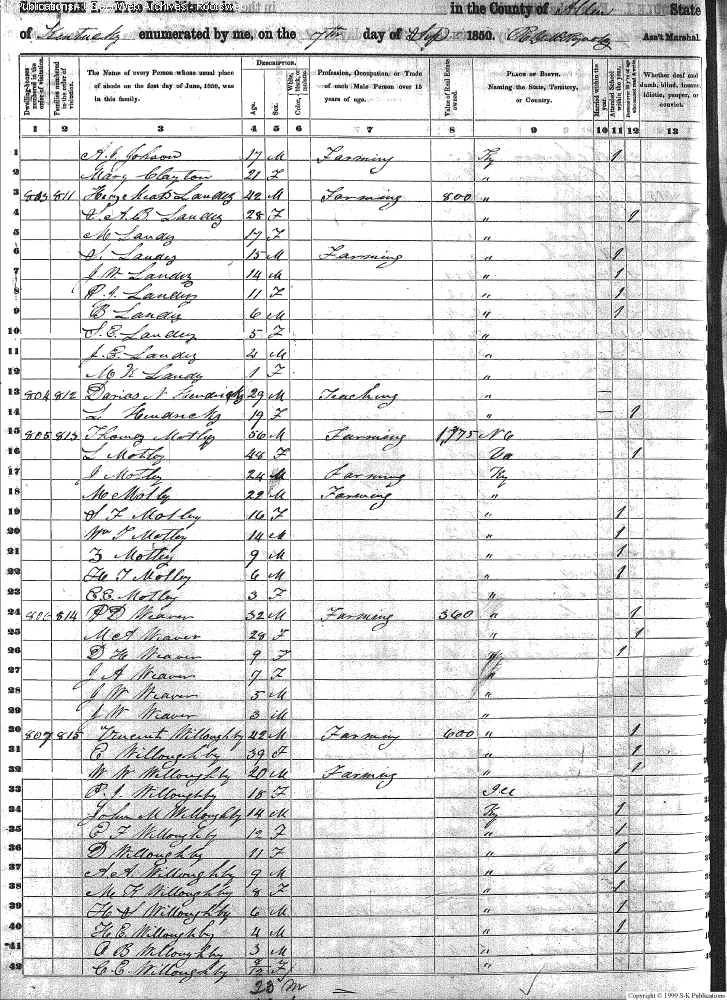 in the County of Allen State
of Kentucky enumerated by me, on the 7th day of Sep 1850. Ass't Marshal
Dwelling-houses numbered in the order of visitation.
Families numbered in the order of visitation.
The Name of every Person whose usual place of abode on the first day of June, 1850, was in this family.
Description.
Age.
Sex.
White, black, or mulatto.
Color,
Profession, Occupation, or Trade of each Male Person over 15 years of age.
Value of Real Estate owned.
Place of Birth. Naming the State, Territory, or Country.
Married within the year.
Attended School within the year.
Whether deaf and dumb, blind, insane, idiotic, pauper, or convict.
1 2 3 4 5 6 7 8 9 10 11 12 13
1 A. J. Johson 17 M Farming Ky 1
2 Mary Clayton 21 F "
3 803 811 Landez 42 M Farming 800 "
4 S. A. B Landez 28 F " 1
5 M Landz 17 F "
6 S. Landez 15 M Farming " 1
7 J. W. Landez 14 M " 1
8 P. J. Landez 11 F " 1
9 B Landez 6 M " 1
10 S. E. Landez 5 F "
11 J. E. Landez 4 M "
12 M. K Landz 1 F "
13 804 812 Darias N Hendricks 29 M Teaching " —
14 L Hendricks 19 F " — 1
15 805 813 Thomas Motley 56 M Farming 1,775 NC
16 L Motley 48 F Va 1
17 J Motley 24 M Farming Ky
18 M Motley 22 M Farming "
19 S F Motley 16 F " 1
20 Wm T Motley 14 M " 1
21 Z Motley 9 M " 1
22 H T Motley 6 M " 1
23 E. E. Motley 3 F "
24 806 814 P D Weaver 32 M Farming 360 " 1
25 M A Weaver 28 F " 1
26 D H Weaver 9 F " 1
27 J A Weaver 7 F "
28 J W Weaver 5 M "
29 J W Weaver 3 M "
30 807 815 Vincent Willoughby 42 M Farming 600 " 1
31 E Willoughby 39 F " 1
32 W W Willoughby 20 M Farming " 1
33 P. J. Willoughby 15 F Ill
34 John M Willoughby 14 M Ky 1
35 E F Willoughby 12 F " 1
36 D Willoughby 11 F " 1
37 A A Willoughby 9 M " 1
38 M F Willoughby 8 F " 1
39 H S Willoughby 6 M " 1
40 H E Willoughby 4 M " 1
41 A B Willoughby 3 M "
42 C. E. Willoughby F "
23 M
Copyright © 1999 S-K Publications